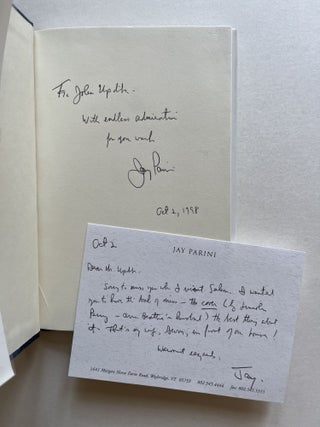 For John Updike –
With endless admiration
for your work
Jay Parini
Oct 2, 1998
Oct 2
JAY PARINI
Dear Mr. Updike –
Sorry to miss you when I visit Salem. I wanted
you to have this book of mine – the cover (by
Perry – Ann Beattie's husband) the best thing about
it. That's my wife, Devon, in front of our house!
Warmest regards,
Jay
Weybridge, VT 05753